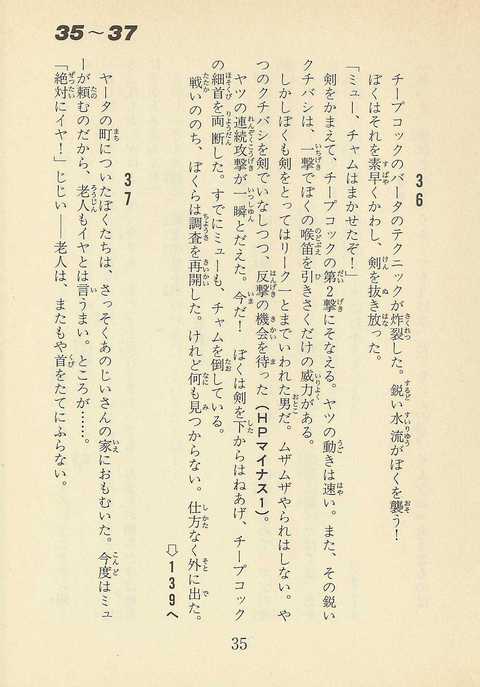 35～37
36
チープコックのバータのテクニックが炸裂した。鋭い水流がぼくを襲う！
ぼくはそれを素早くかわし、剣を抜き放った。
「ミュー、チャムはまかせたぞ！」
剣をかまえて、チープコックの第2撃にそなえる。ヤツの動きは速い。また、その鋭い
クチバシは、一撃でぼくの喉笛を引きさくだけの威力がある。
しかしぼくも剣をとってはリーク」とまでいわれた男だ。ムザムザやられはしない。や
つのクチバシを剣でいなしつつ、反撃の機会を待った（HPマイナス1）。
ヤツの連続攻撃が一瞬とだえた。今だ！　ぼくは剣を下からはねあげ、チープコック
の細首を両断した。すでにミューも、チャムを倒している。
戦いののち、ぼくらは調査を再開した。けれど何も見つからない。仕方なく外に出た。
⇨139へ
37
ヤータの町についたぼくたちは、さっそくあのじいさんの家におもむいた。今度はミュ
ーが頼むのだから、老人もイヤとは言うまい。ところが……。
「絶対にイヤ！」じじい——老人は、またもや首をたてにふらない。
35